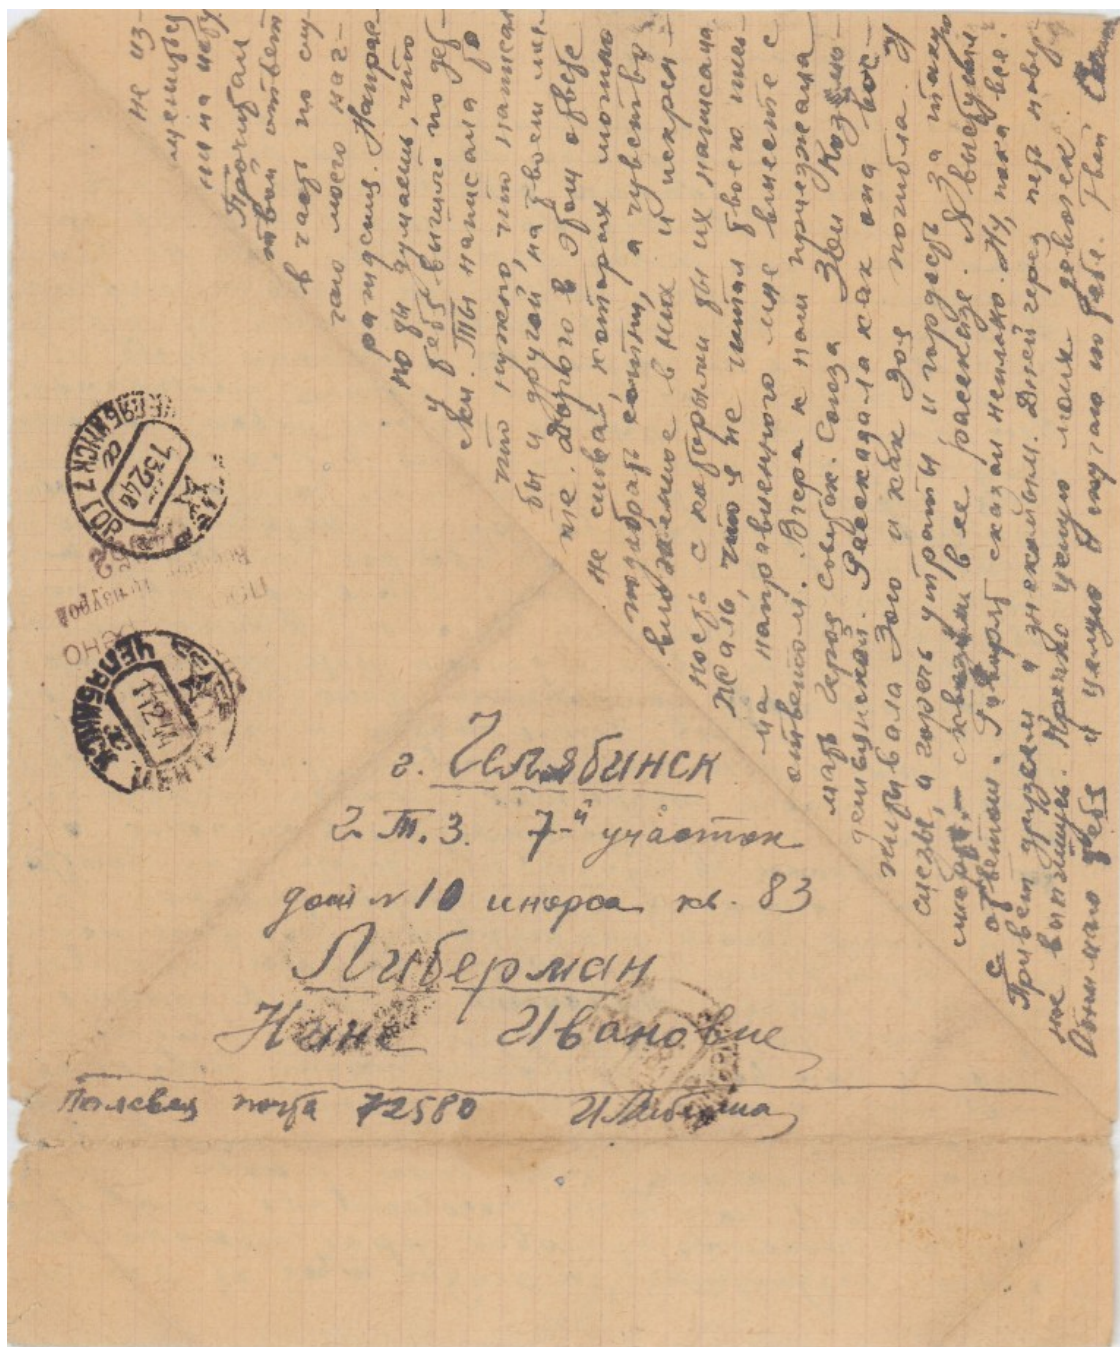 не из-
менишься
ни на йоту
Прочитал
твой ответ
в газ. по слу-
чаю моего наг-
раждения. Напрас-
но ты думаешь, что
у тебя вышло по дет-
ски. Ты написала то
что нужно, что написал
бы и другой, на твоем мес-
те. Дорого в этом ответе
не слова, которых можно
подобрать сотни, а чувства
вложенные в них и искрен-
ность с которыми ты их написала
Жаль, что я не читал твоего пись-
ма направленного мне вместе с
ответом. Вчера к нам приезжала
мать Героя Советск. Союза Зои Козмо-
демьянской. Рассказала как она вос-
питывала Зою и как Зоя погибла. И
слезы, а горечь утраты и гордость за такую
сквозили в ее рассказе. Я выступил
с ответом. Говорят сказал неплохо. Ну, пока все.
Привет друзьям и знакомым. Дней через пять
выпишусь. Крепко целую моих девочек.
Обнимаю тебя и целую и скучаю по тебе. Твой
г. Челябинск
2 Т.З. 7-й участок
дом № 10 инорса кв. 83
Либерман
Нине Ивановне
Полевая почта 72580 И Либерман
ЧЕЛЯБИНСК 7 ГОР
ЧЕЛЯБИНСК